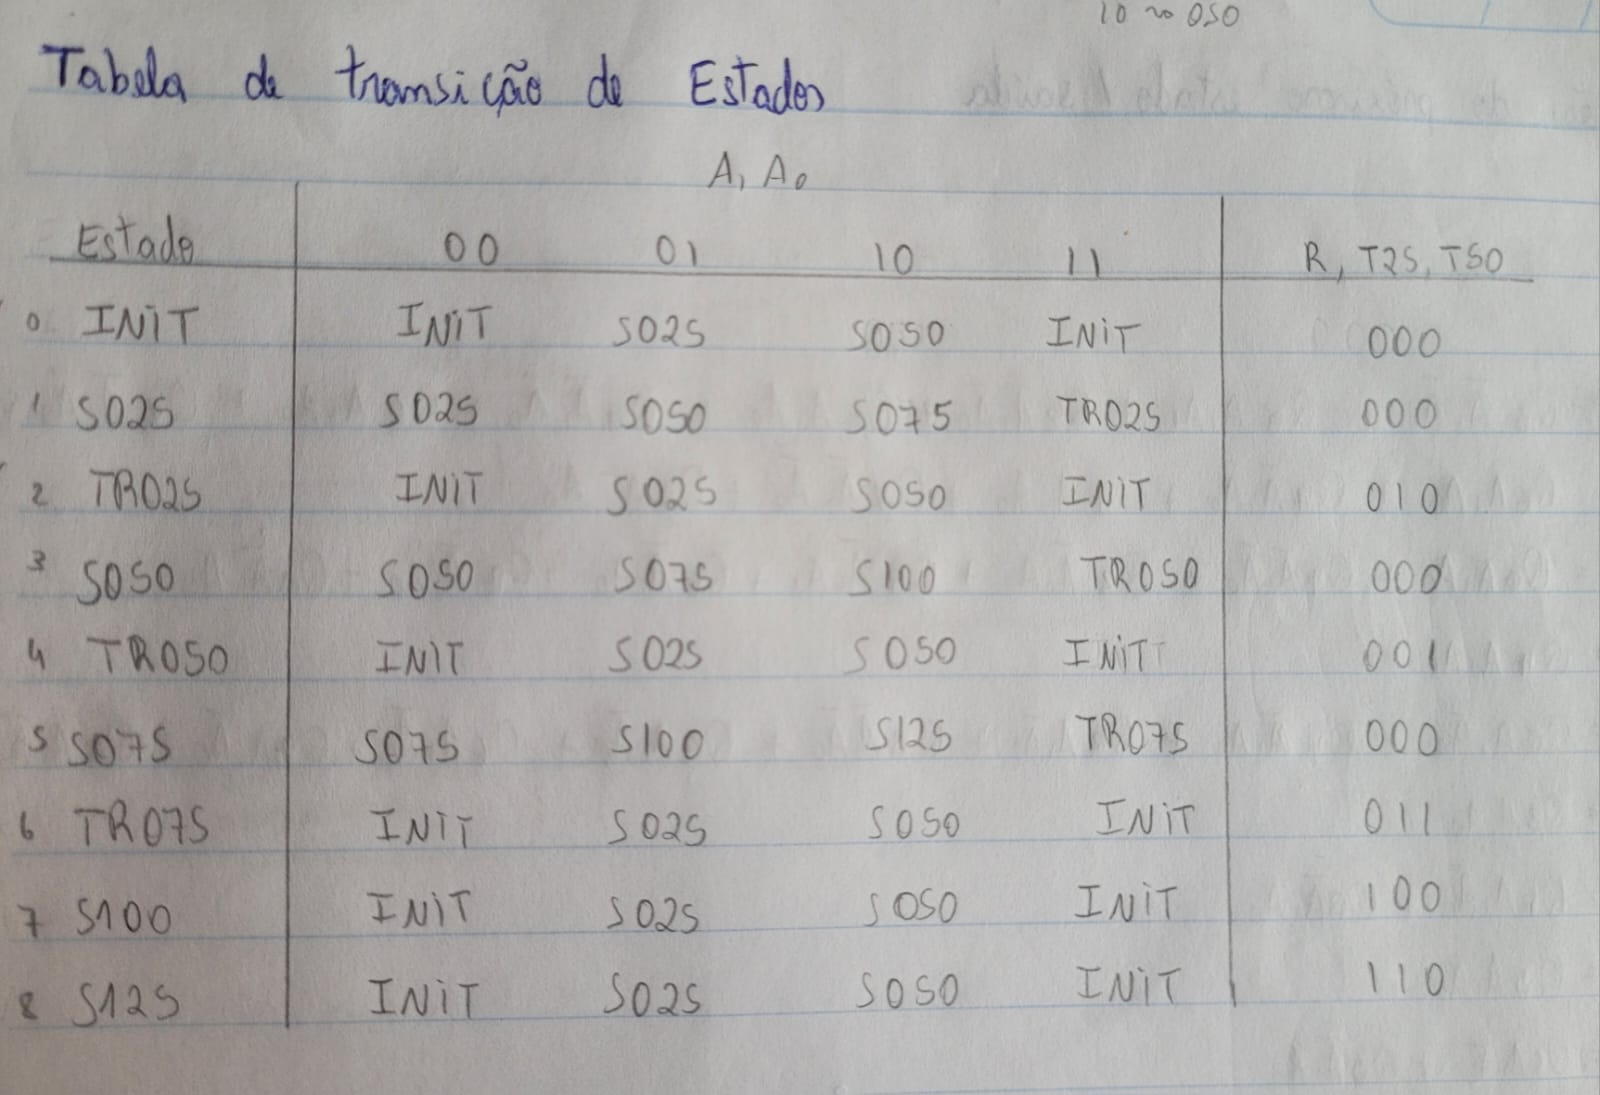 10 ~ 050
Tabela de transição de Estados
A1 A0
Estado 00 01 10 11 R, T25, T50
0 INIT INIT S025 S050 INIT 000
1 S025 S025 S050 S075 TR025 000
2 TR025 INIT S025 S050 INIT 010
3 S050 S050 S075 S100 TR050 000
4 TR050 INIT S025 S050 INIT 001
5 S075 S075 S100 S125 TR075 000
6 TR075 INIT S025 S050 INIT 011
7 S100 INIT S025 S050 INIT 100
8 S125 INIT S025 S050 INIT 110